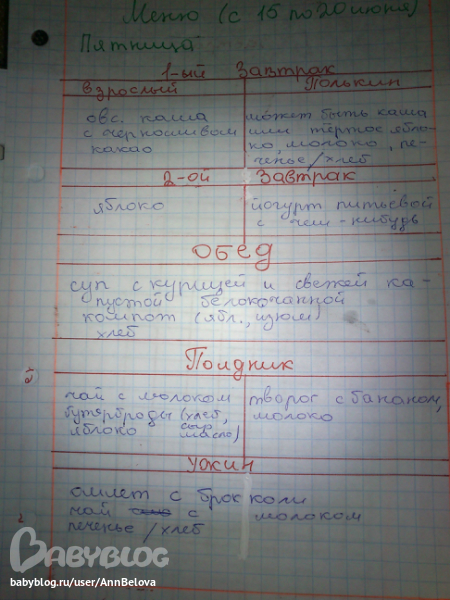 Меню (с 15 по 20 июня)
Пятница
1-ый Завтрак
взрослый Полькин
овс. каша
с черносливом
какао
может быть каша
или тёртое ябло-
ко, молоко, пе-
ченье/хлеб
2-ой Завтрак
яблоко
йогурт питьевой
с чем-нибудь
Обед
суп с курицей и свежей ка-
пустой белокочанной
компот (ябл., изюм)
хлеб
Полдник
чай с молоком
бутерброды (хлеб,
сыр
яблоко масло)
творог с бананом,
молоко
Ужин
омлет с брокколи
чай с молоком
печенье/хлеб
BABYBLOG
babyblog.ru/user/AnnBelova